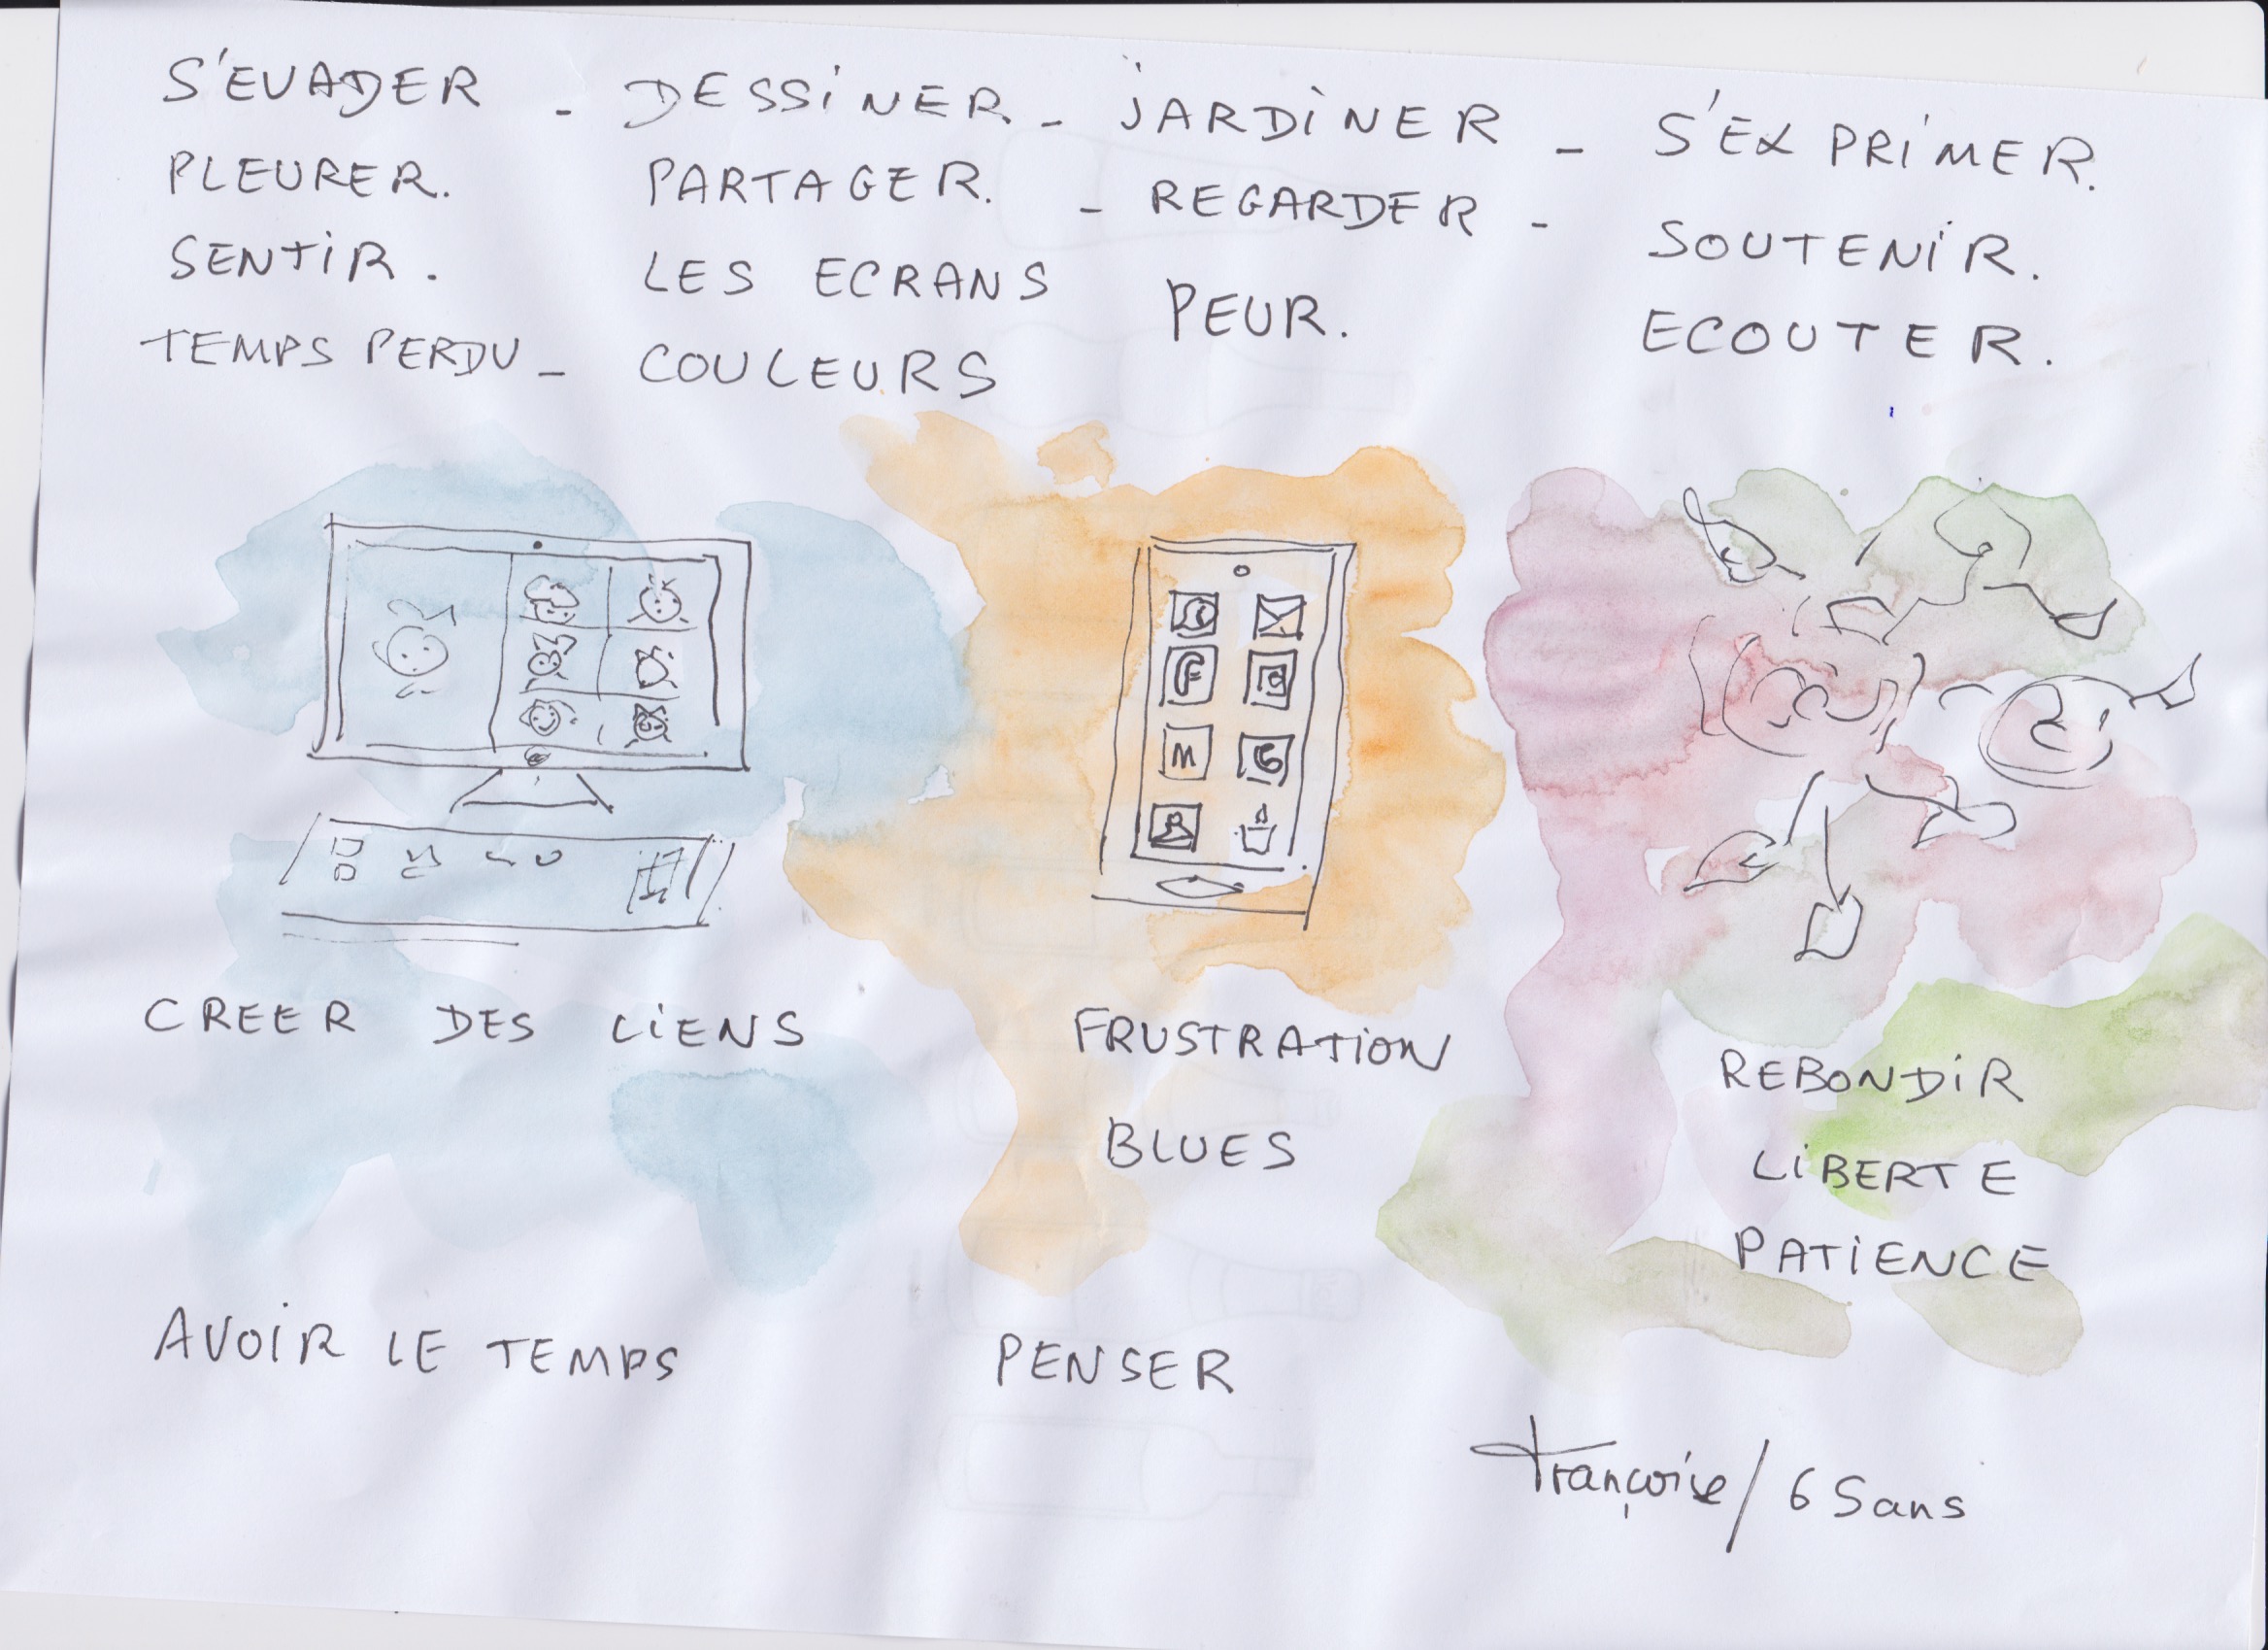 S'EVADER - DESSiNER - jARDiNER - S'EXPRiMER.
PLEURER. PARTAGER. - REGARDER - SOUTENiR.
SENTiR. LES ECRANS PEUR. ECOUTER.
TEMPS PERDU - COULEURS
F
M
CREER DES LiENS
FRUSTRATiON
BLUES
REBONDiR
LiBERTE
PATiENCE
AVOiR LE TEMPS PENSER
Françoise / 65ans